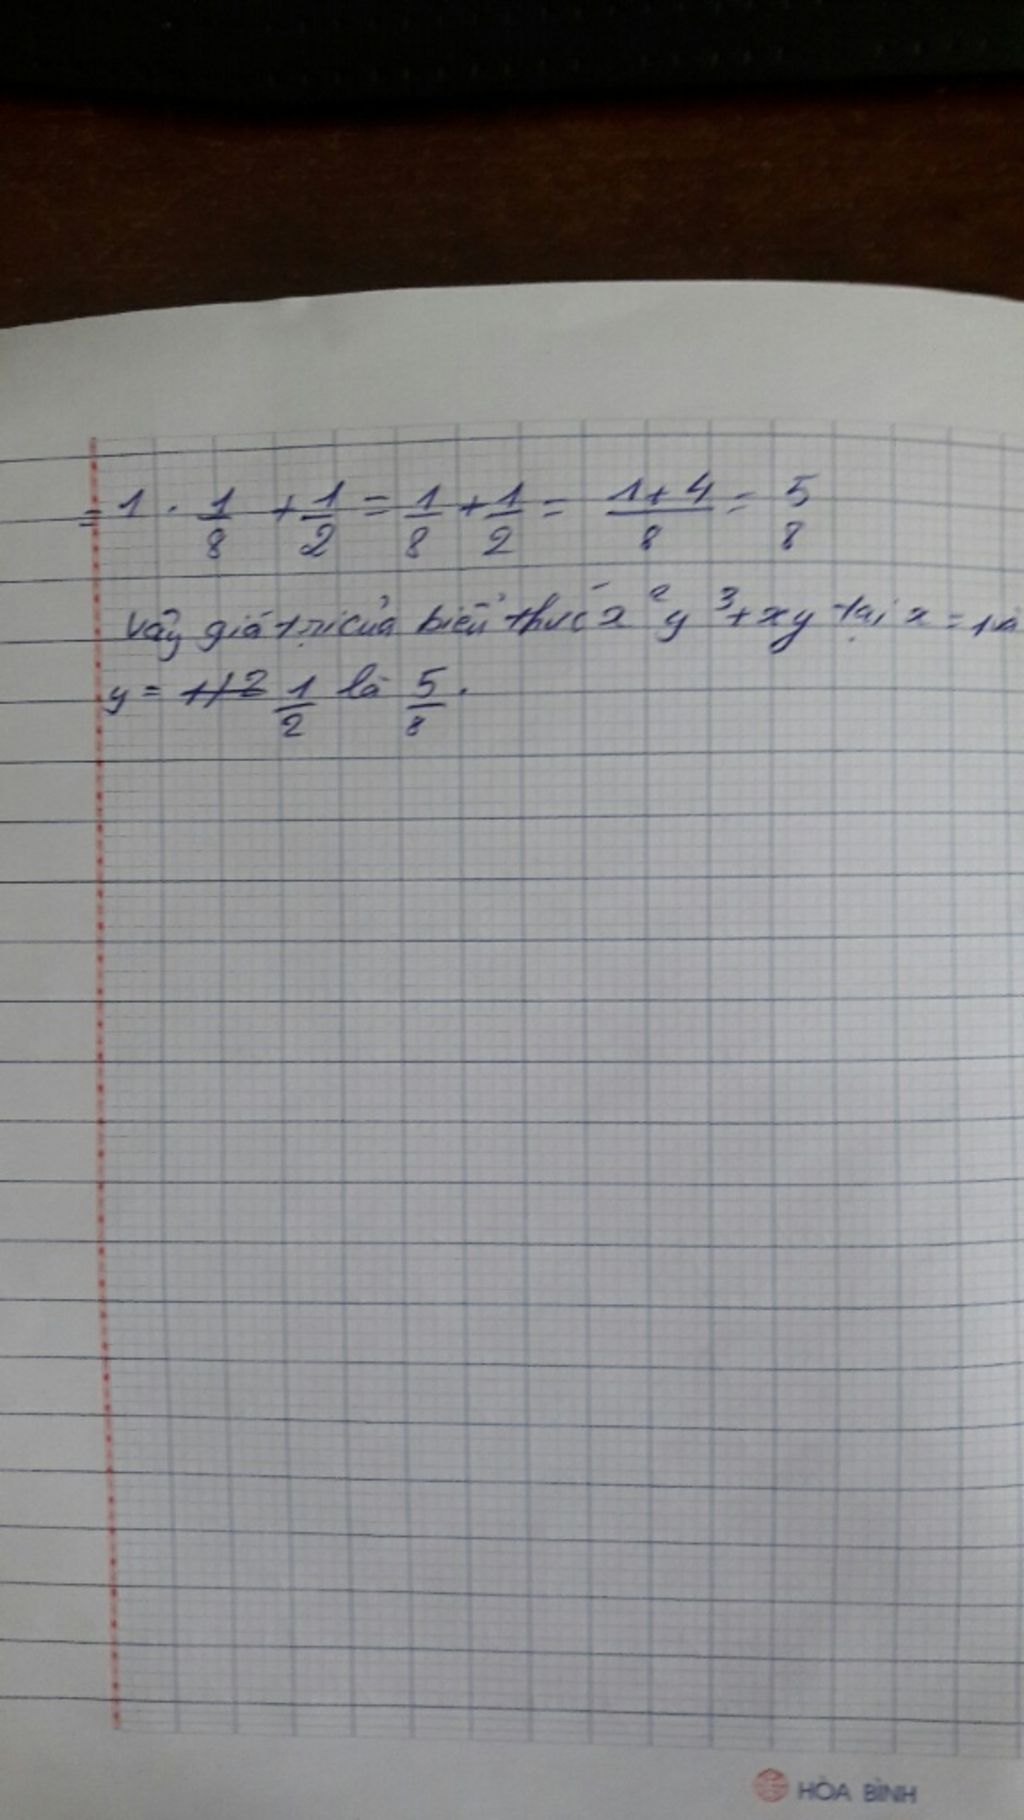 = 1 . 1/8 + 1/2 = 1/8 + 1/2 = (1+4)/8 = 5/8
Vậy giá trị của biểu thức x²y³+xy tại x = 1 và
y = 1/2 1/2 là 5/8.
HÒA BÌNH